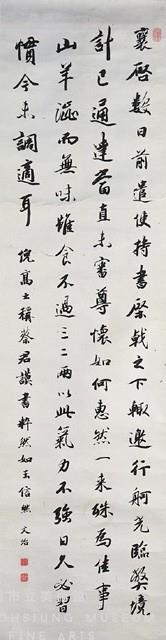 襄啓數日前遣使持書棨戟之下輙邀行舸光臨獘境
計已通達當直未審尊懷如何惠然一來殊爲佳事
山羊澁而無味雖食不過三二兩以此氣力不強日久必習
慣今未調適耳
倪高士稱蔡君謨書粹然如玉信然 文治
OHSIUNG MUSEUM
FINE ARTS